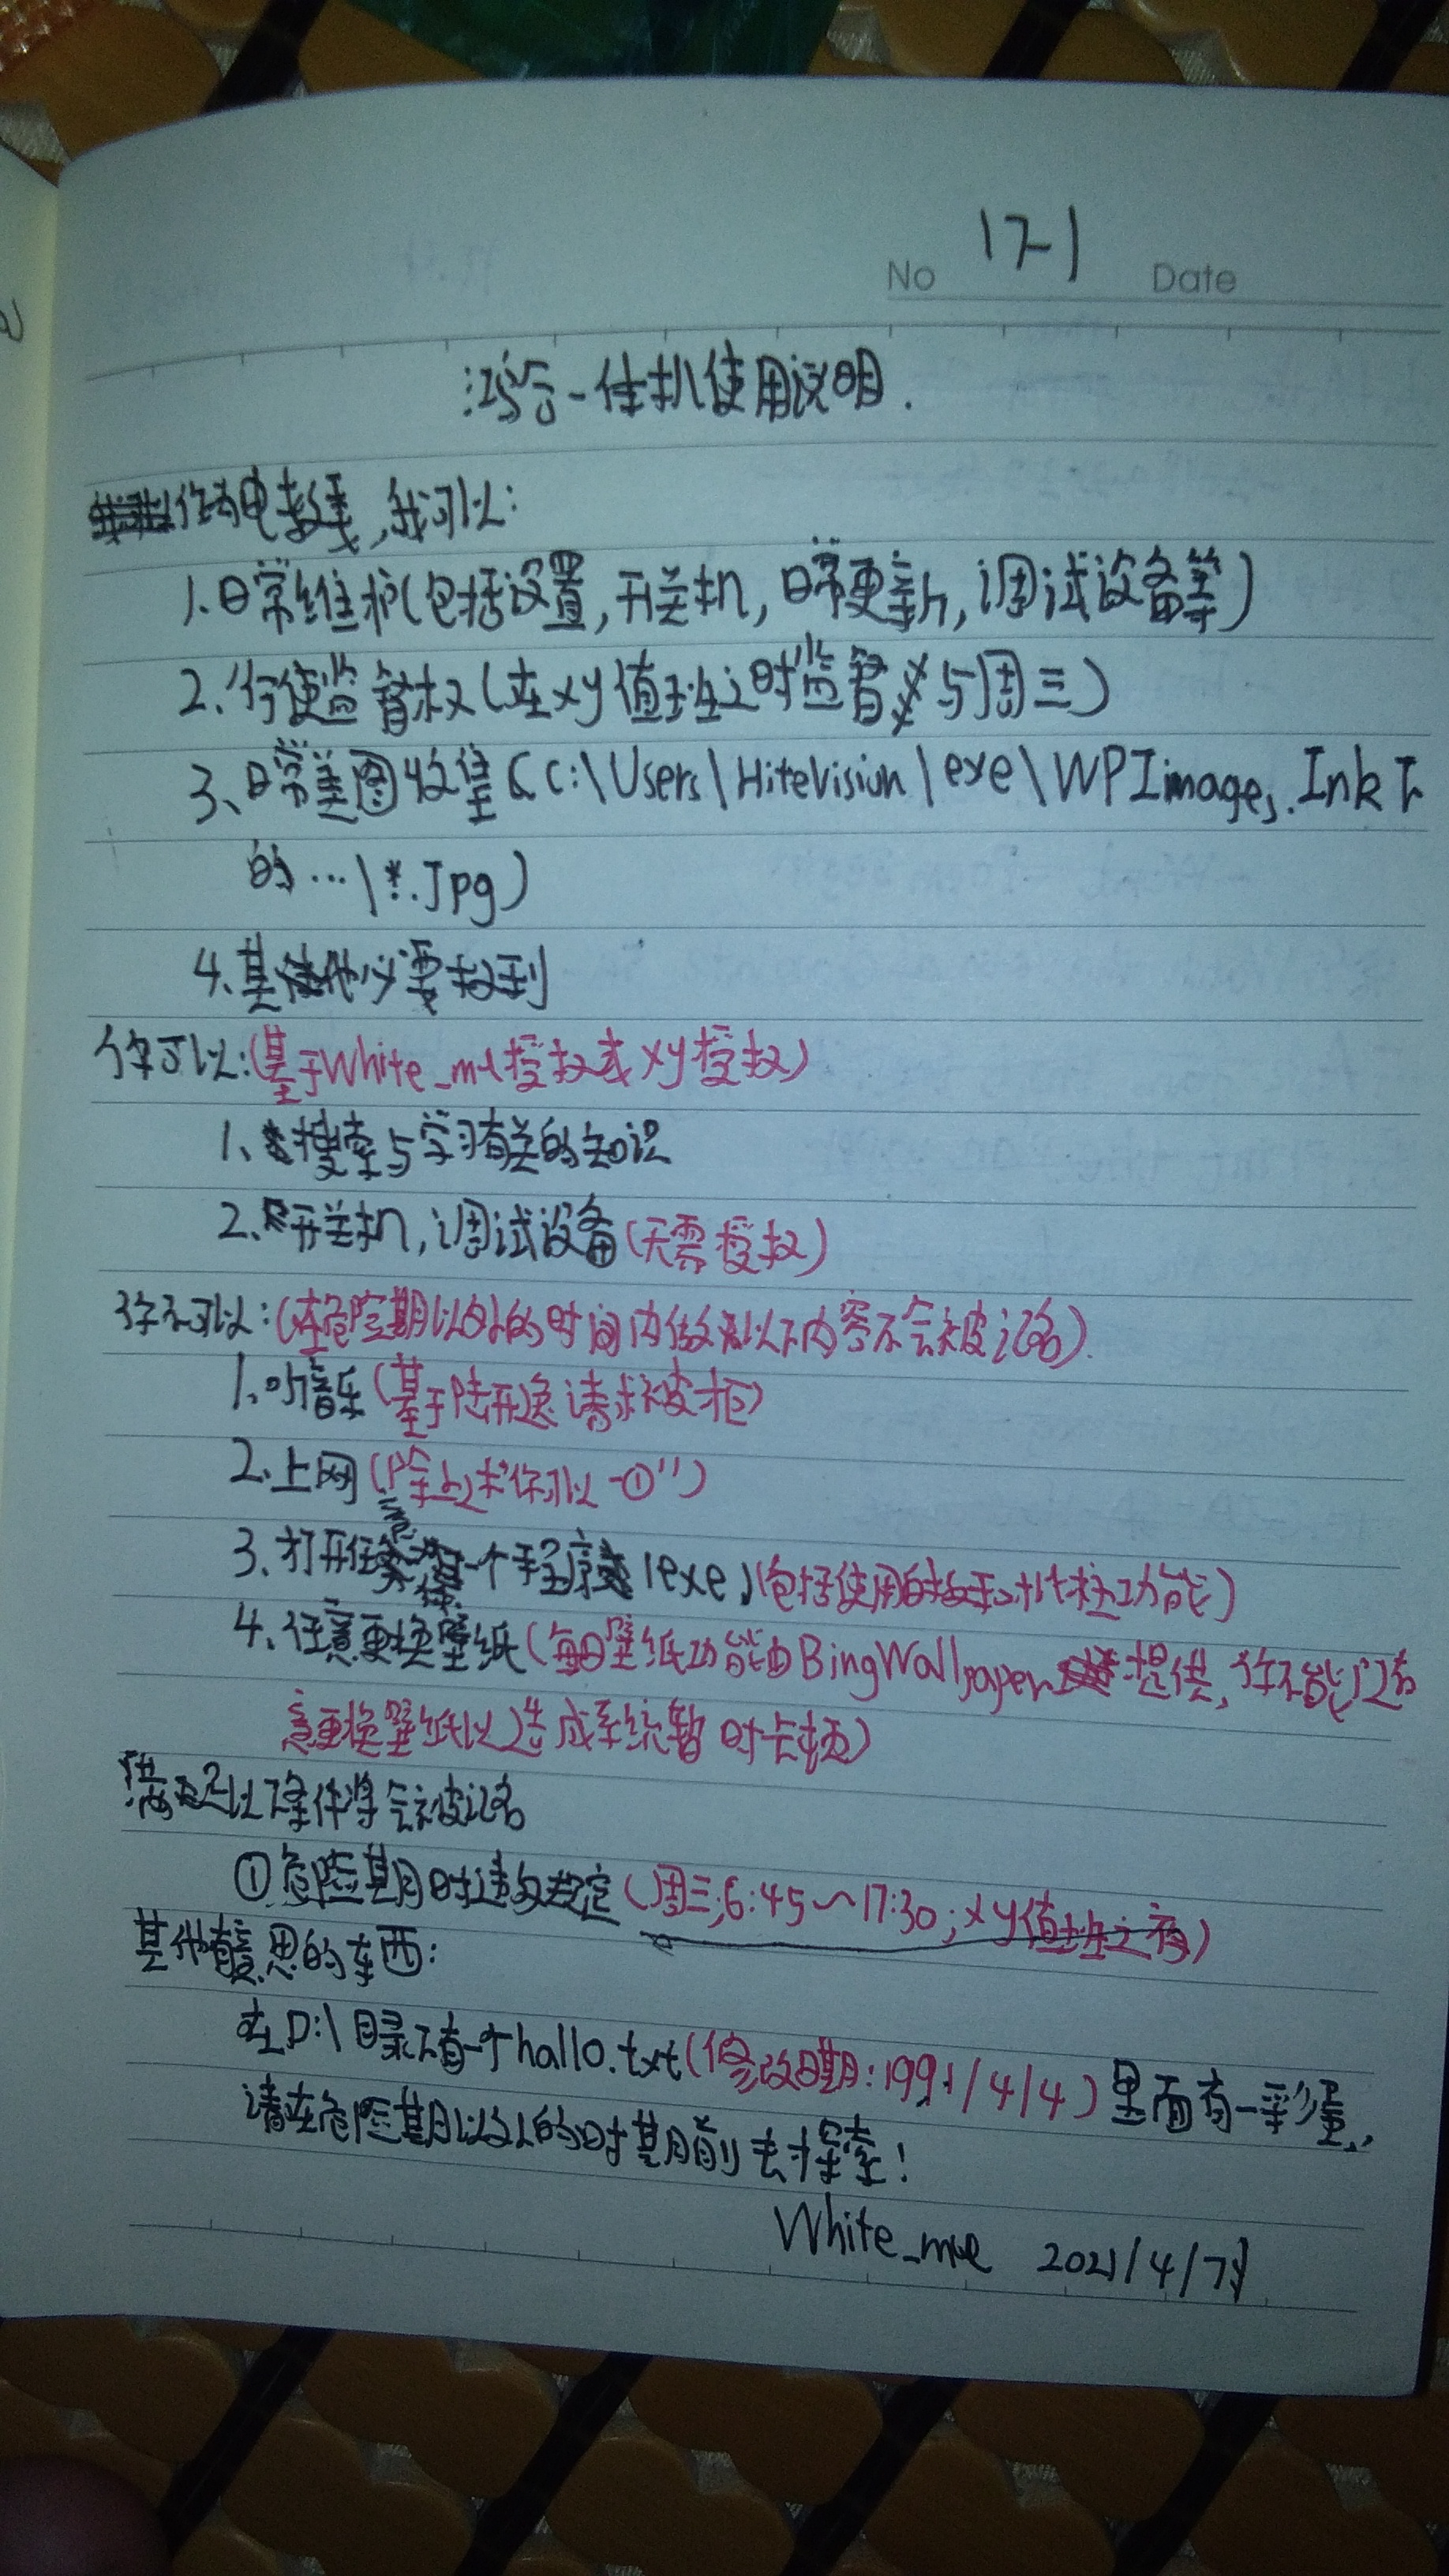 No 17-1 Date
鸿合一体机使用说明.
作为电教委,我可以:
1.日常维护(包括设置,开关机,日常更新,调试设备等)
2.行使监督权(在xy值班之时监督与周三)
3.日常美图收集(C:\Users\HiteVision\exe\WPImages.lnk下
的…\*.Jpg)
4.其他必要权利
你可以:(基于White_me授权或xy授权)
1.搜索与学习有关的知识
2.开关机,调试设备(无需授权)
你不可以:(在危险期以外的时间内做以下内容不会被记名).
1.听音乐(基于请求被拒)
2.上网(除上述"你可以-①")
3.打开任意一个程序(exe)(包括使用功能)
4.任意更换壁纸(每日壁纸功能由BingWallpaper提供,你不能随
意更换壁纸以造成系统暂时卡顿)
满足以下条件将会被记名
①危险期时违反规定(周三;6:45~17:30;xy值班之夜)
其他有意思的东西:
在D:\目录下有一个hallo.txt(修改日期:1991/4/4)里面有一彩蛋,
请在危险期以外的时期前去探索!
White_me 2021/4/7